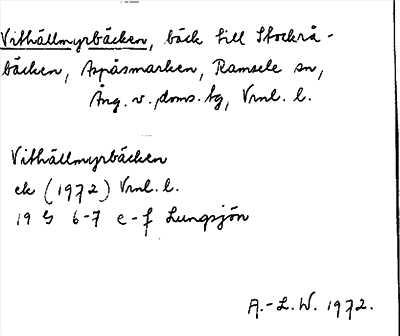 Vithällmyrbäcken, bäck till Stockså-
bäcken, Aspåsmarken, Ramsele sn,
Ång. v. doms. tg, Vrnl. l.
Vithällmyrbäcken
ek (1972) Vrnl. l.
19 G 6-7 e-f Lungsjön
A.-L.W. 1972.